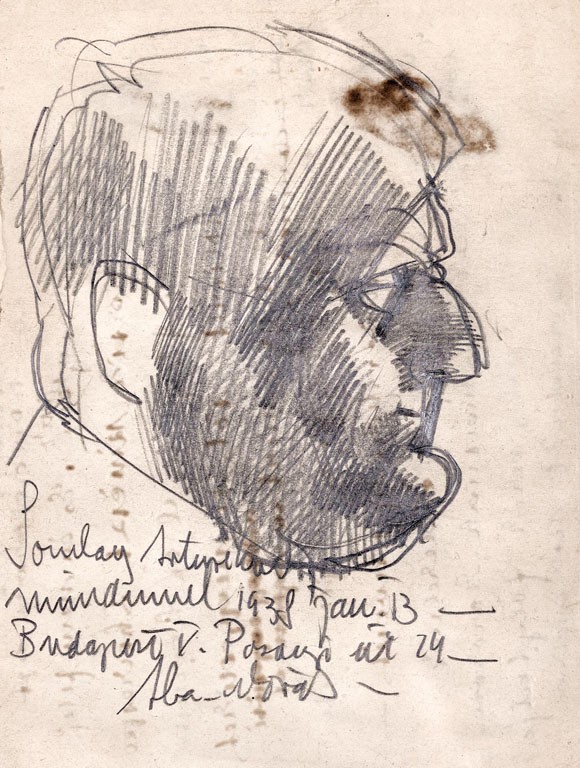 Somlay Arturnak
1938 jan. 13
Budapest V. Pozsonyi út 24
Aba-Novák